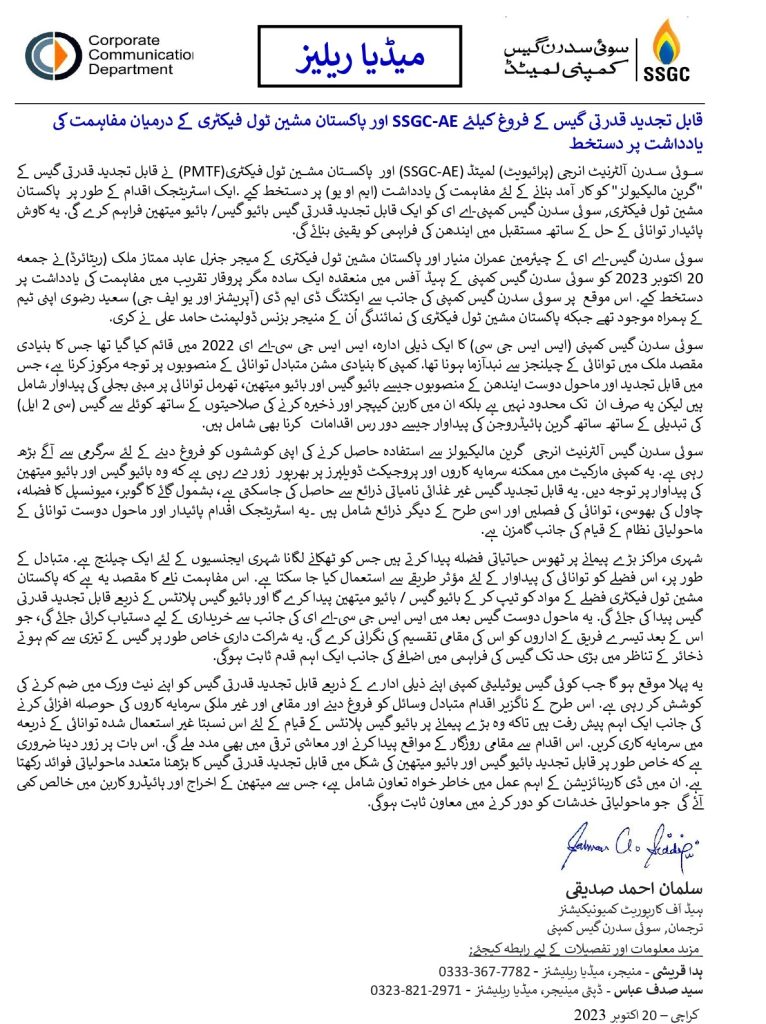 Corporate
Communication
Department
میڈیا ریلیز
سوئی سدرن گیس
کمپنی لمیٹڈ
SSGC
قابل تجدید قدرتی گیس کے فروغ کیلئے SSGC-AE اور پاکستان مشین ٹول فیکٹری کے درمیان مفاہمت کی
یادداشت پر دستخط
سوئی سدرن آلٹرنیٹ انرجی (پرائیویٹ) لمیٹڈ (SSGC-AE) اور پاکستان مشین ٹول فیکٹری(PMTF) نے قابل تجدید قدرتی گیس کے
"گرین مالیکیولز" کو کار آمد بنانے کے لئے مفاہمت کی یادداشت (ایم او یو) پر دستخط کیے ۔ایک اسٹریٹجک اقدام کے طور پر پاکستان
مشین ٹول فیکٹری, سوئی سدرن گیس کمپنی-اے ای کو ایک قابل تجدید قدرتی گیس بائیو گیس/ بائیو میتھین فراہم کرے گی۔ یہ کاوش
پائیدار توانائی کے حل کے ساتھ مستقبل میں ایندھن کی فراہمی کو یقینی بنائے گی۔
سوئی سدرن گیس-اے ای کے چیئرمین عمران منیار اور پاکستان مشین ٹول فیکٹری کے میجر جنرل عابد ممتاز ملک (ریٹائرڈ)نے جمعہ
20 اکتوبر 2023 کو سوئی سدرن گیس کمپنی کے ہیڈ آفس میں منعقدہ ایک سادہ مگر پروقار تقریب میں مفاہمت کی یادداشت پر
دستخط کیے۔ اس موقع پر سوئی سدرن گیس کمپنی کی جانب سے ایکٹنگ ڈی ایم ڈی (آپریشنز اور یو ایف جی) سعید رضوی اپنی ٹیم
کے ہمراہ موجود تھے جبکہ پاکستان مشین ٹول فیکٹری کی نمائندگی اُن کے منیجر بزنس ڈولپمنٹ حامد علی نے کری۔
سوئی سدرن گیس کمپنی (ایس ایس جی سی) کا ایک ذیلی ادارہ، ایس ایس جی سی-اے ای 2022 میں قائم کیا گیا تھا جس کا بنیادی
مقصد ملک میں توانائی کے چیلنجز سے نبدآزما ہونا تھا. کمپنی کا بنیادی مشن متبادل توانائی کے منصوبوں پر توجہ مرکوز کرنا ہے، جس
میں قابل تجدید اور ماحول دوست ایندھن کے منصوبوں جیسے بائیو گیس اور بائیو میتھین، تھرمل توانائی پر مبنی بجلی کی پیداوار شامل
ہیں لیکن یہ صرف ان تک محدود نہیں ہے بلکہ ان میں کاربن کیپچر اور ذخیرہ کرنے کی صلاحیتوں کے ساتھ کوئلے سے گیس (سی 2 ایل)
کی تبدیلی کے ساتھ ساتھ گرین ہائیڈروجن کی پیداوار جیسے دور رس اقدامات کرنا بھی شامل ہیں.
سوئی سدرن گیس آلٹرنیٹ انرجی گرین مالیکیولز سے استفادہ حاصل کرنے کی اپنی کوششوں کو فروغ دینے کے لئے سرگرمی سے آگے بڑھ
رہی ہے۔ یہ کمپنی مارکیٹ میں ممکنہ سرمایہ کاروں اور پروجیکٹ ڈویلپرز پر بھرپور زور دے رہی ہے کہ وہ بائیو گیس اور بائیو میتھین
کی پیداوار پر توجہ دیں۔ یہ قابل تجدید گیس غیر غذائی نامیاتی ذرائع سے حاصل کی جاسکتی ہے، بشمول گائے کا گوبر، میونسپل کا فضلہ،
چاول کی بھوسی، توانائی کی فصلیں اور اسی طرح کے دیگر ذرائع شامل ہیں ۔یہ اسٹریٹجک اقدام پائیدار اور ماحول دوست توانائی کے
ماحولیاتی نظام کے قیام کی جانب گامزن ہے.
شہری مراکز بڑے پیمانے پر ٹھوس حیاتیاتی فضلہ پیدا کرتے ہیں جس کو ٹھکانے لگانا شہری ایجنسیوں کے لئے ایک چیلنج ہے. متبادل کے
طور پر، اس فضلے کو توانائی کی پیداوار کے لئے مؤثر طریقے سے استعمال کیا جا سکتا ہے. اس مفاہمت نامے کا مقصد یہ ہے کہ پاکستان
مشین ٹول فیکٹری فضلے کے مواد کو ٹیپ کر کے بائیو گیس / بائیو میتھین پیدا کرے گا اور بائیو گیس پلانٹس کے ذریعے قابل تجدید قدرتی
گیس پیدا کی جائے گی۔ یہ ماحول دوست گیس بعد میں ایس ایس جی سی-اے ای کی جانب سے خریداری کے لیے دستیاب کرائی جائے گی، جو
اس کے بعد تیسرے فریق کے اداروں کو اس کی مقامی تقسیم کی نگرانی کرے گی۔ یہ شراکت داری خاص طور پر گیس کے تیزی سے کم ہوتے
ذخائر کے تناظر میں بڑی حد تک گیس کی فراہمی میں اضافے کی جانب ایک اہم قدم ثابت ہوگی.
یہ پہلا موقع ہو گا جب کوئی گیس یوٹیلیٹی کمپنی اپنے ذیلی ادارے کے ذریعے قابل تجدید قدرتی گیس کو اپنے نیٹ ورک میں ضم کرنے کی
کوشش کر رہی ہے. اس طرح کے ناگزیر اقدام متبادل وسائل کو فروغ دینے اور مقامی اور غیر ملکی سرمایہ کاروں کی حوصلہ افزائی کرنے
کی جانب ایک اہم پیش رفت ہیں تاکہ وہ بڑے پیمانے پر بائیو گیس پلانٹس کے قیام کے لئے اس نسبتا غیر استعمال شدہ توانائی کے ذریعہ
میں سرمایہ کاری کریں. اس اقدام سے مقامی روزگار کے مواقع پیدا کرنے اور معاشی ترقی میں بھی مدد ملے گی. اس بات پر زور دینا ضروری
ہے کہ خاص طور پر قابل تجدید بائیو گیس اور بائیو میتھین کی شکل میں قابل تجدید قدرتی گیس کا بڑھنا متعدد ماحولیاتی فوائد رکھتا
ہے. ان میں ڈی کاربنائزیشن کے اہم عمل میں خاطر خواہ تعاون شامل ہے، جس سے میتھین کے اخراج اور ہائیڈرو کاربن میں خالص کمی
آئے گی جو ماحولیاتی خدشات کو دور کرنے میں معاون ثابت ہوگی.
سلمان احمد صدیقی
ہیڈ آف کارپوریٹ کمیونیکیشنز
ترجمان, سوئی سدرن گیس کمپنی
مزید معلومات اور تفصیلات کے لیے رابطہ کیجئے:
ہدا قریشی - منیجر، میڈیا ریلیشنز - 7782-367-0333
سید صدف عباس - ڈپٹی مینیجر، میڈیا ریلیشنز - 2971-821-0323
کراچی – 20 اکتوبر 2023